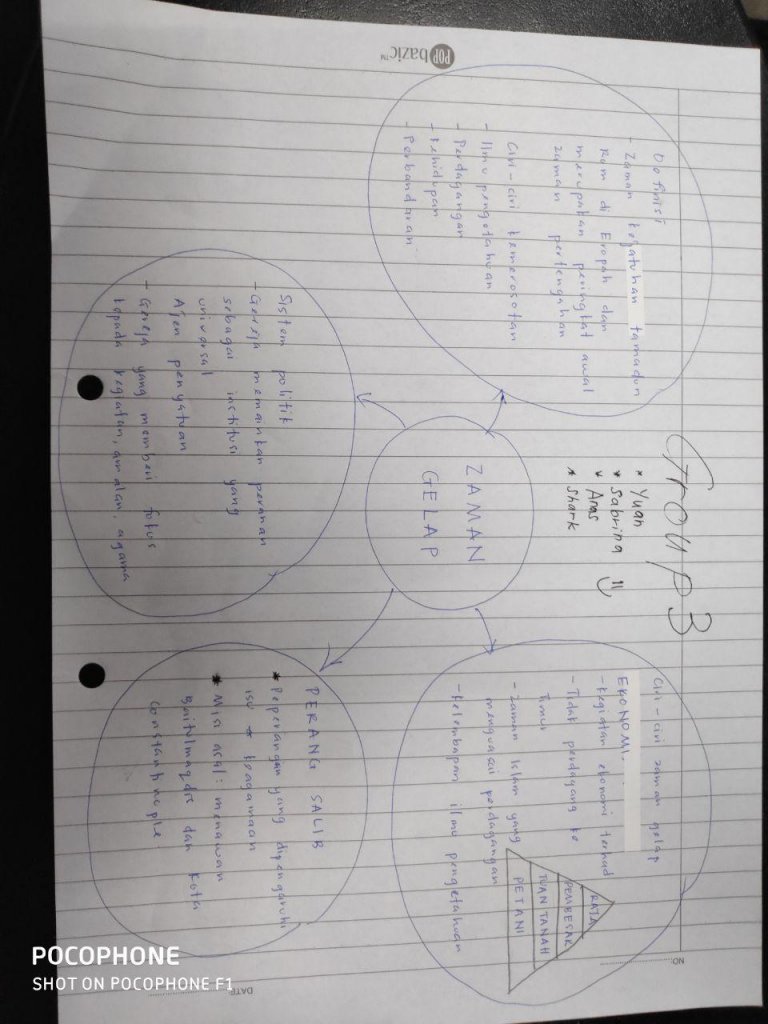 POP bazic™
NO:
DATE:
GROUP 3
* Yuan
* Sabrina
* Anas
* Shark
ZAMAN
GELAP
Definisi
- Zaman kejatuhan tamadun
Rom di Eropah dan
merupakan peringkat awal
zaman pertengahan
Ciri-ciri kemerosotan
- Ilmu pengetahuan
- Perdagangan
- Kehidupan
- Perbandaran
Ciri-ciri zaman gelap
EKONOMI
- Kegiatan ekonomi terhad
- Tidak perdagang ke
Timur
- Zaman Islam yang
menguasai perdagangan
- Kelembapan ilmu pengetahuan
RAJA
PEMBESAR
TUAN TANAH
PETANI
Sistem politik
- Gereja memainkan peranan
sebagai institusi yang
universal
Ajen penyatuan
- Gereja yang memberi fokus
kepada kegiatan, amalan agama
PERANG SALIB
* Peperangan yang dipengaruhi
isu keagamaan
* Misi asal: menawan
Baitulmaqdis dan kota
Constantinople
POCOPHONE
SHOT ON POCOPHONE F1